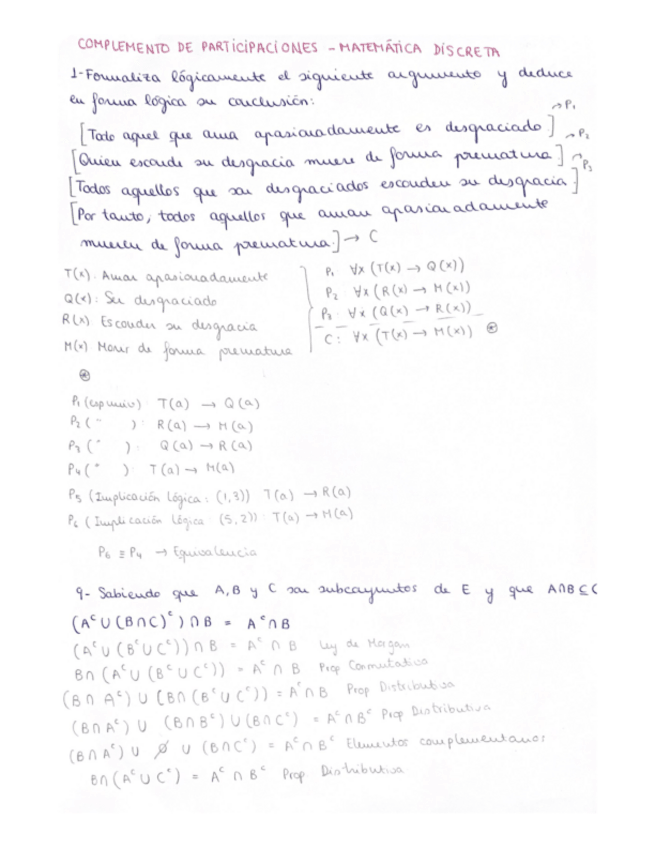 COMPLEMENTO DE PARTICIPACIONES - MATEMÁTICA DISCRETA
1- Formaliza lógicamente el siguiente argumento y deduce
en forma lógica su conclusión:
[Todo aquel que ama apasionadamente es desgraciado] → P₁
[Quien esconde su desgracia muere de forma prematura] → P₂
[Todos aquellos que son desgraciados esconden su desgracia] → P₃
[Por tanto, todos aquellos que aman apasionadamente
mueren de forma prematura.] → C
T(x): Amar apasionadamente
Q(x): Ser desgraciado
R(x): Esconder su desgracia
M(x) Morir de forma prematura
P₁ ∀x (T(x) → Q(x))
P₂ ∀x (R(x) → M(x))
P₃: ∀x (Q(x) → R(x))
C: ∀x (T(x) → M(x)) ⊛
⊛
P₁ () T(a) → Q(a)
P₂ ( " ) : R(a) → M(a)
P₃ ( " ) : Q(a) → R(a)
P₄ ( " ) : T(a) → M(a)
P₅ (Implicación lógica: (1,3)) T(a) → R(a)
P₆ (Implicación lógica: (5,2)) : T(a) → M(a)
P₆ ≡ P₄ → Equivalencia
9- Sabiendo que A, B y C son subconjuntos de E y que A∩B ⊆ C
(Aᶜ ∪ (B∩C)ᶜ) ∩ B = Aᶜ ∩ B
(Aᶜ ∪ (Bᶜ ∪ Cᶜ)) ∩ B = Aᶜ ∩ B Ley de Morgan
B∩ (Aᶜ ∪ (Bᶜ ∪ Cᶜ)) = Aᶜ ∩ B Prop Conmutativa
(B ∩ Aᶜ) ∪ (B∩ (Bᶜ ∪ Cᶜ)) = Aᶜ ∩ B Prop Distributiva
(B∩Aᶜ) ∪ (B∩Bᶜ) ∪ (B∩Cᶜ) = Aᶜ ∩ Bᶜ Prop Distributiva
(B∩Aᶜ) ∪ ∅ ∪ (B∩Cᶜ) = Aᶜ ∩ Bᶜ Elementos complementarios
B∩ (Aᶜ ∪ Cᶜ) = Aᶜ ∩ Bᶜ Prop Distributiva